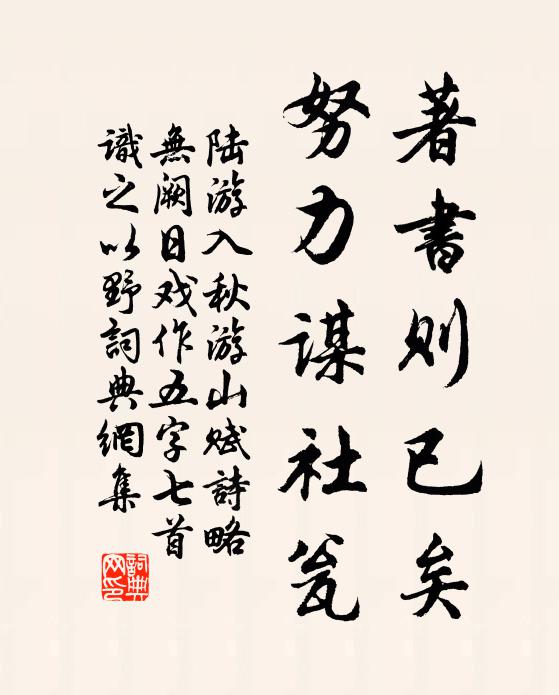 著書則已矣
努力謀社瓮
陆游入秋游山赋詩略
無阙日戏作五字七首
識之以野詞典網集
詞典网印